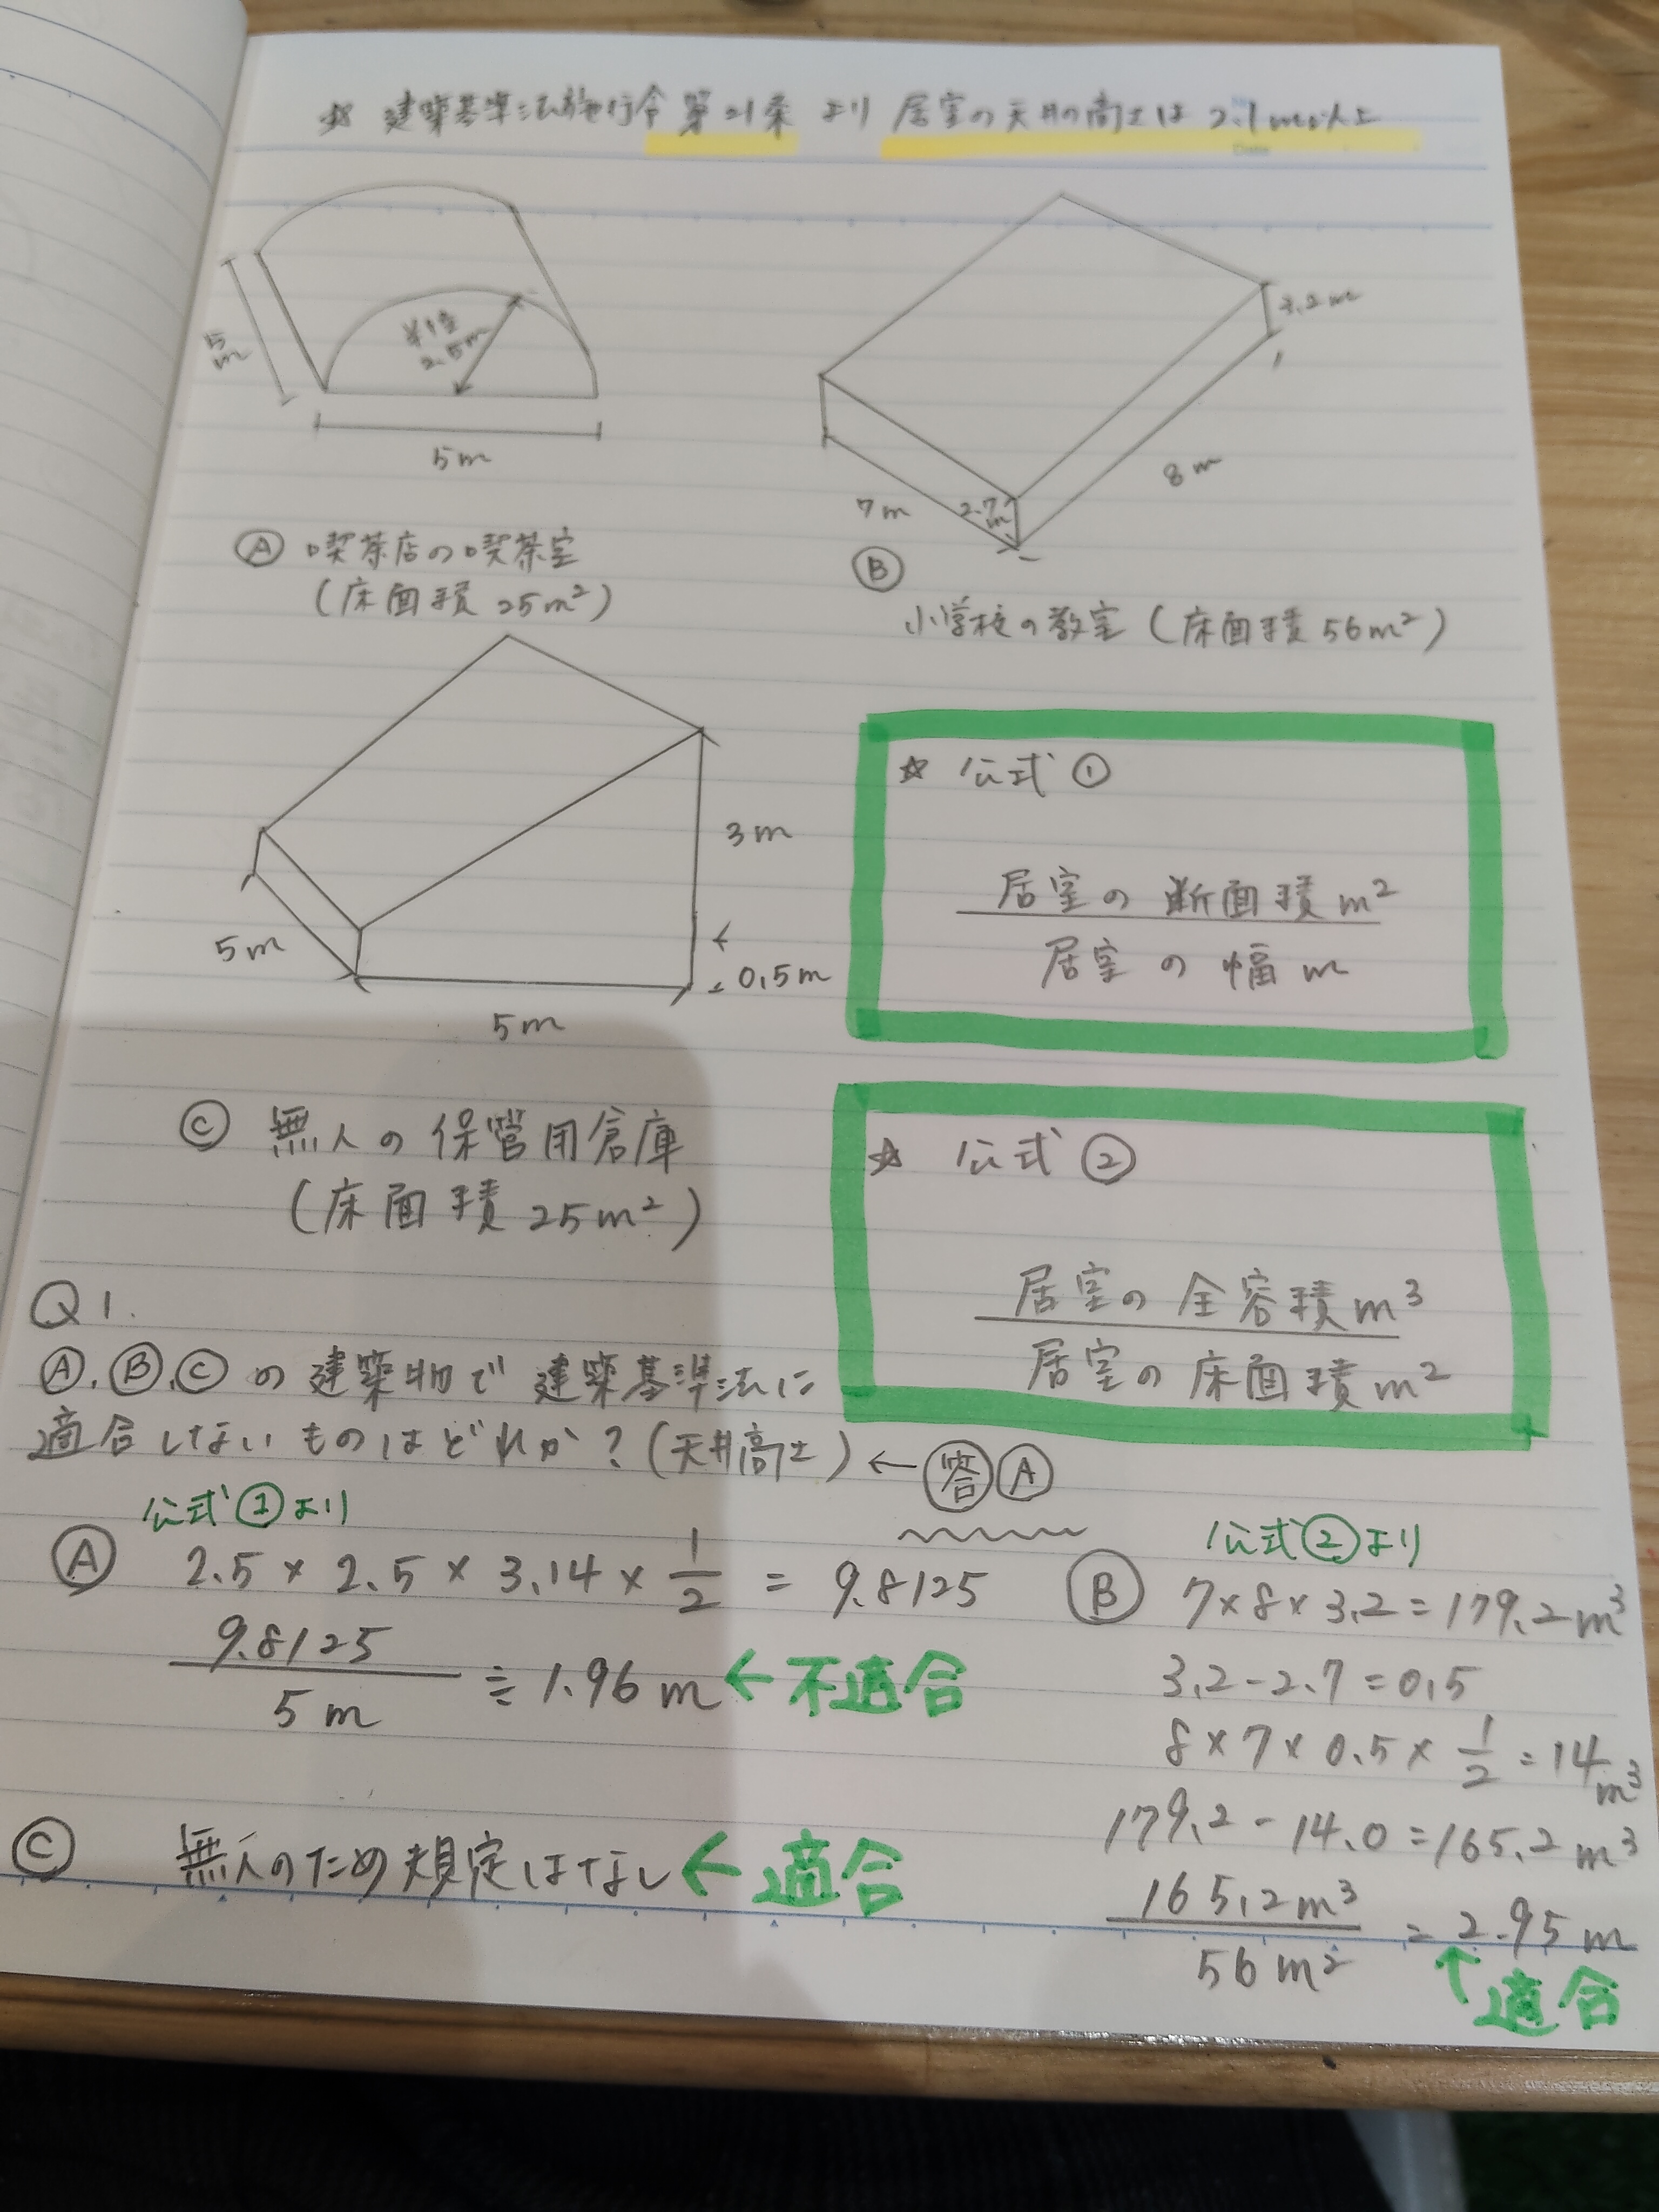 ☆ 建築基準法施行令 第21条 より 居室の天井の高さは 2.1m以上
半径
2.5m
5m
5m
3.2m
8m
7m
2.7m
Ⓐ 喫茶店の喫茶室
(床面積 25m²)
Ⓑ
小学校の教室 (床面積 56m²)
3m
0.5m
5m
5m
☆ 公式①
居室の断面積 m²
居室の幅 m
Ⓒ 無人の保管用倉庫
(床面積 25m²)
☆ 公式②
居室の全容積 m³
居室の床面積 m²
Q1.
Ⓐ.Ⓑ.Ⓒの建築物で建築基準法に
適合しないものはどれか?(天井高さ) ← 答 Ⓐ
公式①より
Ⓐ 2.5 × 2.5 × 3.14 × 1/2 = 9.8125
9.8125
5m
≒ 1.96m ← 不適合
公式②より
Ⓑ 7×8×3.2=179.2m³
3.2-2.7=0.5
8×7×0.5×1/2=14m³
179.2-14.0=165.2m³
165.2m³
56m²
=2.95m
↑適合
Ⓒ 無人のため規定はなし ← 適合